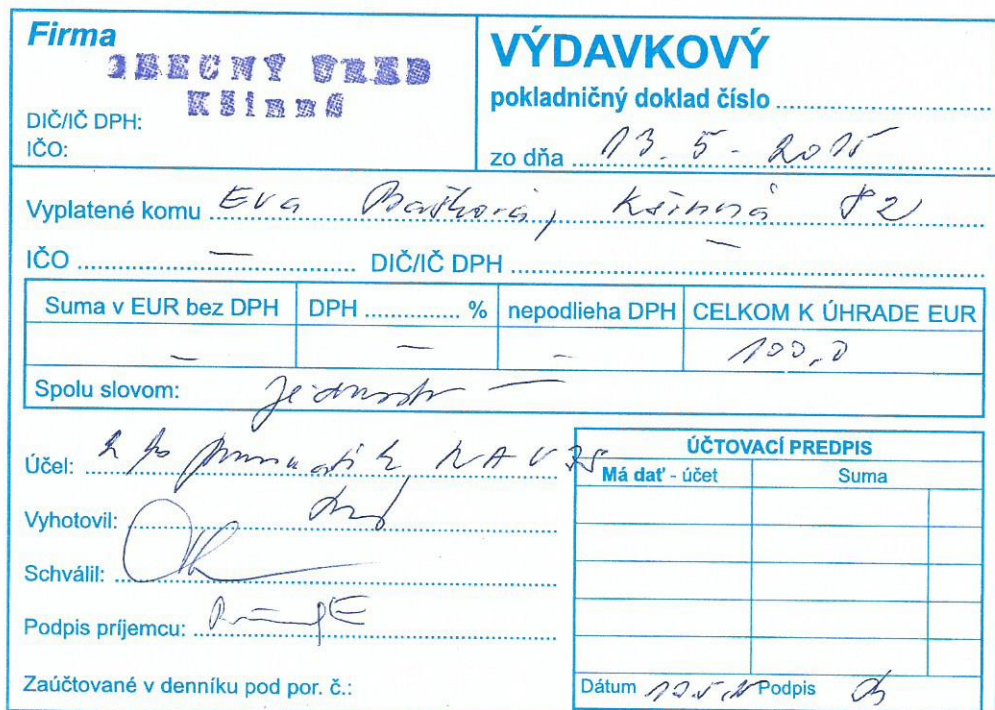 Firma
OBECNÝ ÚRAD
Kšinná
DIČ/IČ DPH:
IČO:
VÝDAVKOVÝ
pokladničný doklad číslo
zo dňa 13. 5 - 2015
Vyplatené komu Eva Bašková, Kšinná 82
IČO — DIČ/IČ DPH —
Suma v EUR bez DPH DPH % nepodlieha DPH CELKOM K ÚHRADE EUR
— — — 100,0
Spolu slovom: Jednosto —
Účel: 2 ks pneumatik
Vyhotovil:
Schválil:
Podpis príjemcu:
Zaúčtované v denníku pod por. č.:
ÚČTOVACÍ PREDPIS
Má dať - účet Suma
Dátum 13.5.15 Podpis